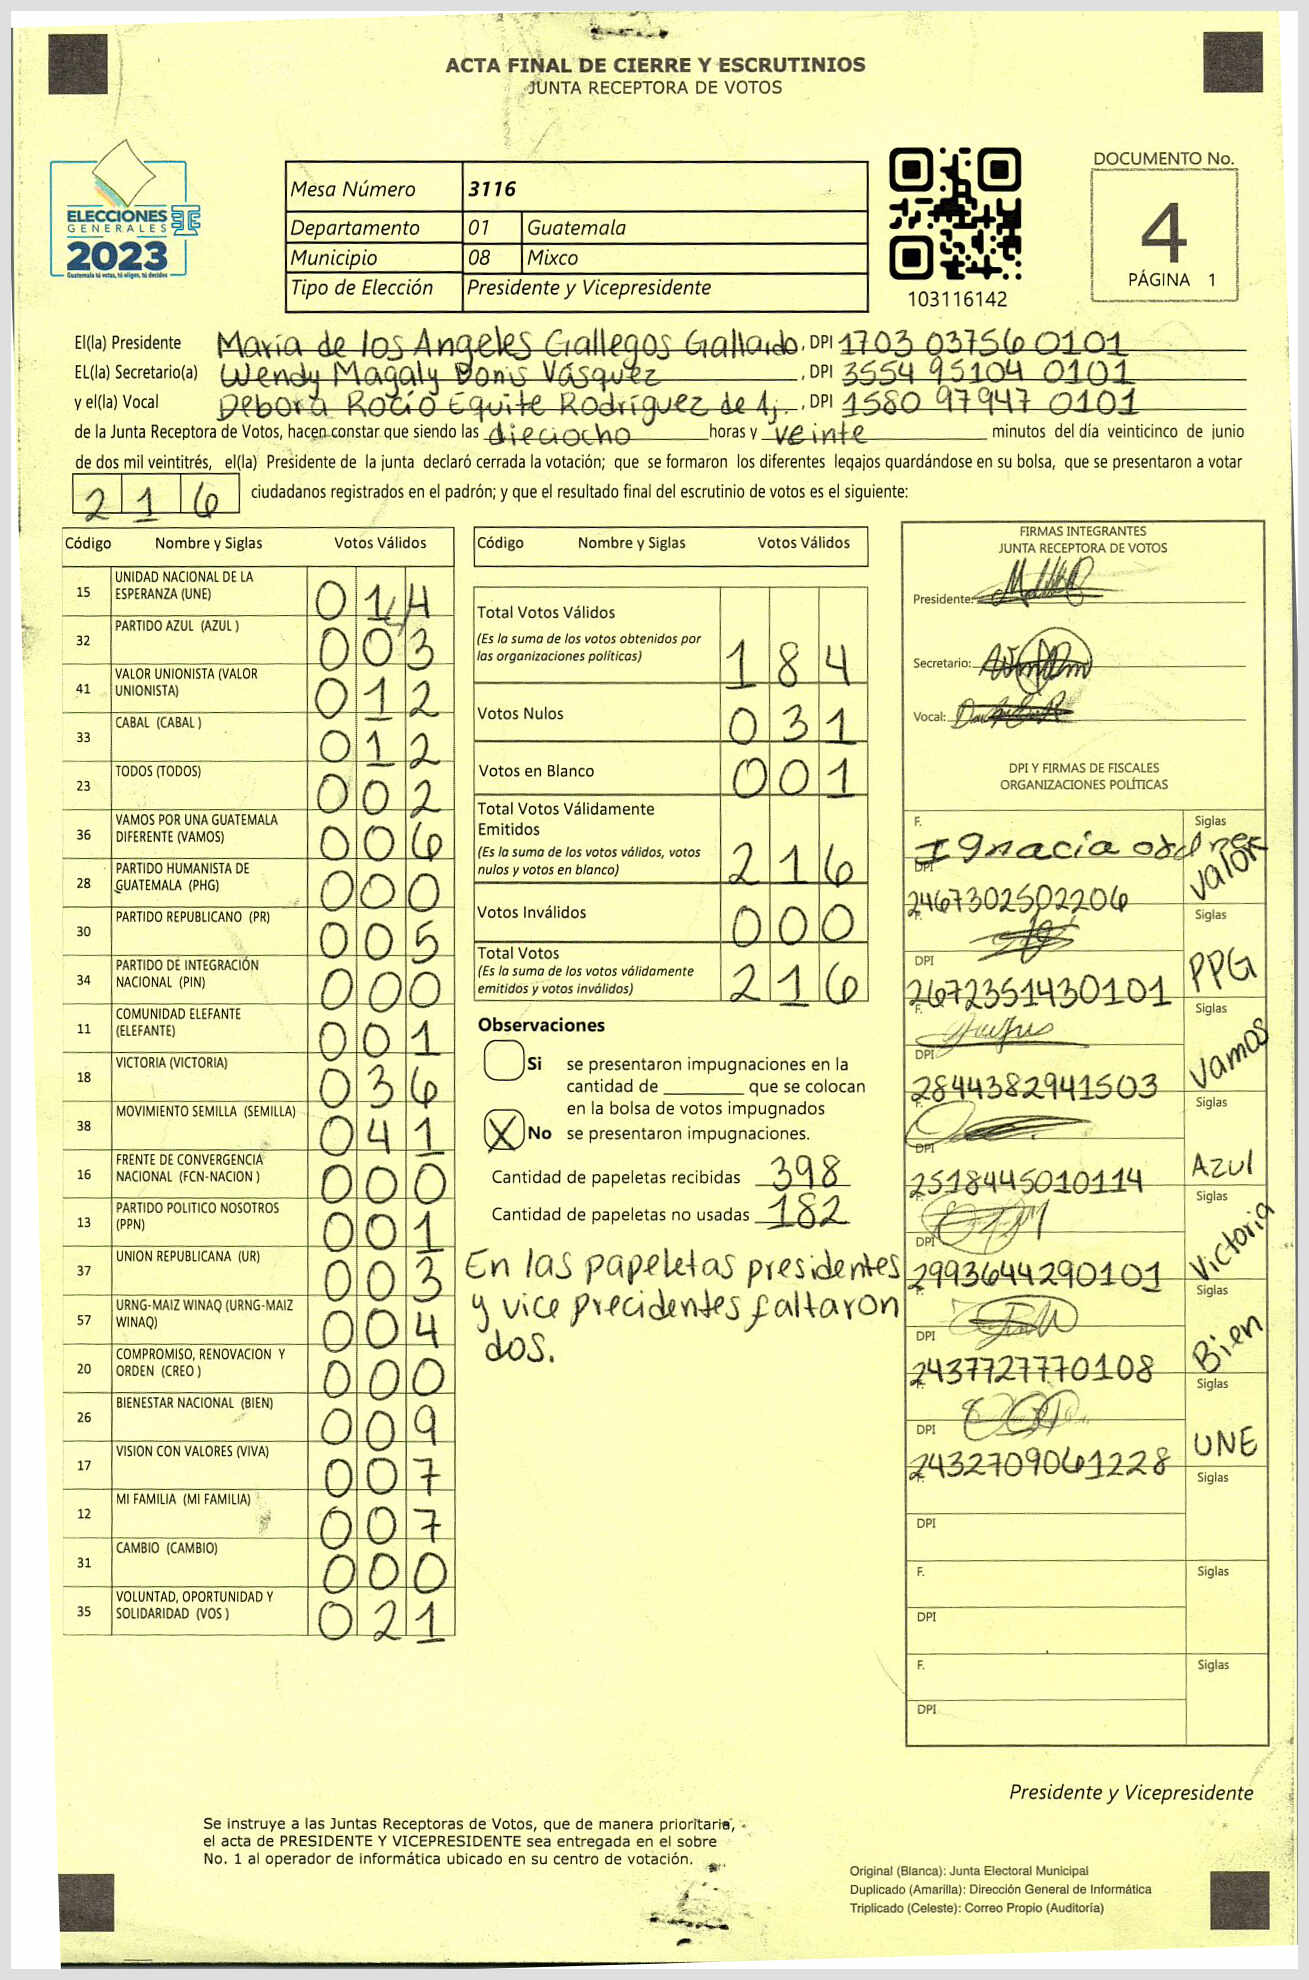 ACTA FINAL DE CIERRE Y ESCRUTINIOS
JUNTA RECEPTORA DE VOTOS
ELECCIONES
GENERALES
2023
Guatemala tú votas, tú eliges, tú decides
Mesa Número 3116
Departamento 01 Guatemala
Municipio 08 Mixco
Tipo de Elección Presidente y Vicepresidente
103116142
DOCUMENTO No.
4
PÁGINA 1
El(la) Presidente María de los Angeles Gallegos Gallardo, DPI 1703 03756 0101
EL(la) Secretario(a) Wendy Magaly Donis Vásquez, DPI 3554 95104 0101
y el(la) Vocal Debora Rocío Equite Rodríguez de A;., DPI 1580 97947 0101
de la Junta Receptora de Votos, hacen constar que siendo las dieciocho horas y veinte minutos del día veinticinco de junio
de dos mil veintitrés, el(la) Presidente de la junta declaró cerrada la votación; que se formaron los diferentes legajos quardándose en su bolsa, que se presentaron a votar
216 ciudadanos registrados en el padrón; y que el resultado final del escrutinio de votos es el siguiente:
Código Nombre y Siglas Votos Válidos
15 UNIDAD NACIONAL DE LA ESPERANZA (UNE) 014
32 PARTIDO AZUL (AZUL ) 003
41 VALOR UNIONISTA (VALOR UNIONISTA) 012
33 CABAL (CABAL ) 012
23 TODOS (TODOS) 002
36 VAMOS POR UNA GUATEMALA DIFERENTE (VAMOS) 006
28 PARTIDO HUMANISTA DE GUATEMALA (PHG) 000
30 PARTIDO REPUBLICANO (PR) 005
34 PARTIDO DE INTEGRACIÓN NACIONAL (PIN) 000
11 COMUNIDAD ELEFANTE (ELEFANTE) 001
18 VICTORIA (VICTORIA) 036
38 MOVIMIENTO SEMILLA (SEMILLA) 041
16 FRENTE DE CONVERGENCIA NACIONAL (FCN-NACION ) 000
13 PARTIDO POLITICO NOSOTROS (PPN) 001
37 UNION REPUBLICANA (UR) 003
57 URNG-MAIZ WINAQ (URNG-MAIZ WINAQ) 004
20 COMPROMISO, RENOVACION Y ORDEN (CREO ) 000
26 BIENESTAR NACIONAL (BIEN) 009
17 VISION CON VALORES (VIVA) 007
12 MI FAMILIA (MI FAMILIA) 007
31 CAMBIO (CAMBIO) 000
35 VOLUNTAD, OPORTUNIDAD Y SOLIDARIDAD (VOS ) 021
Código Nombre y Siglas Votos Válidos
Total Votos Válidos
(Es la suma de los votos obtenidos por
las organizaciones políticas) 184
Votos Nulos 031
Votos en Blanco 001
Total Votos Válidamente
Emitidos
(Es la suma de los votos válidos, votos
nulos y votos en blanco) 216
Votos Inválidos 000
Total Votos
(Es la suma de los votos válidamente
emitidos y votos inválidos) 216
Observaciones
Si se presentaron impugnaciones en la
cantidad de ________ que se colocan
en la bolsa de votos impugnados
X No se presentaron impugnaciones.
Cantidad de papeletas recibidas 398
Cantidad de papeletas no usadas 182
En las papeletas presidentes
y vice precidentes faltaron
dos.
FIRMAS INTEGRANTES
JUNTA RECEPTORA DE VOTOS
Presidente:
Secretario:
Vocal:
DPI Y FIRMAS DE FISCALES
ORGANIZACIONES POLÍTICAS
F. Ignacia Siglas Valor
DPI 2467302502206
F. Siglas PPG
DPI 2672351430101
F. Siglas Vamos
DPI 2844382941503
F. Siglas Azul
DPI 2518445010114
F. Siglas Victoria
DPI 2993644290101
F. Siglas Bien
DPI 2437727770108
F. Siglas UNE
DPI 2432709061228
F. Siglas
DPI
F. Siglas
DPI
F. Siglas
DPI
Presidente y Vicepresidente
Se instruye a las Juntas Receptoras de Votos, que de manera prioritaria,
el acta de PRESIDENTE Y VICEPRESIDENTE sea entregada en el sobre
No. 1 al operador de informática ubicado en su centro de votación.
Original (Blanca): Junta Electoral Municipal
Duplicado (Amarilla): Dirección General de Informática
Triplicado (Celeste): Correo Propio (Auditoría)